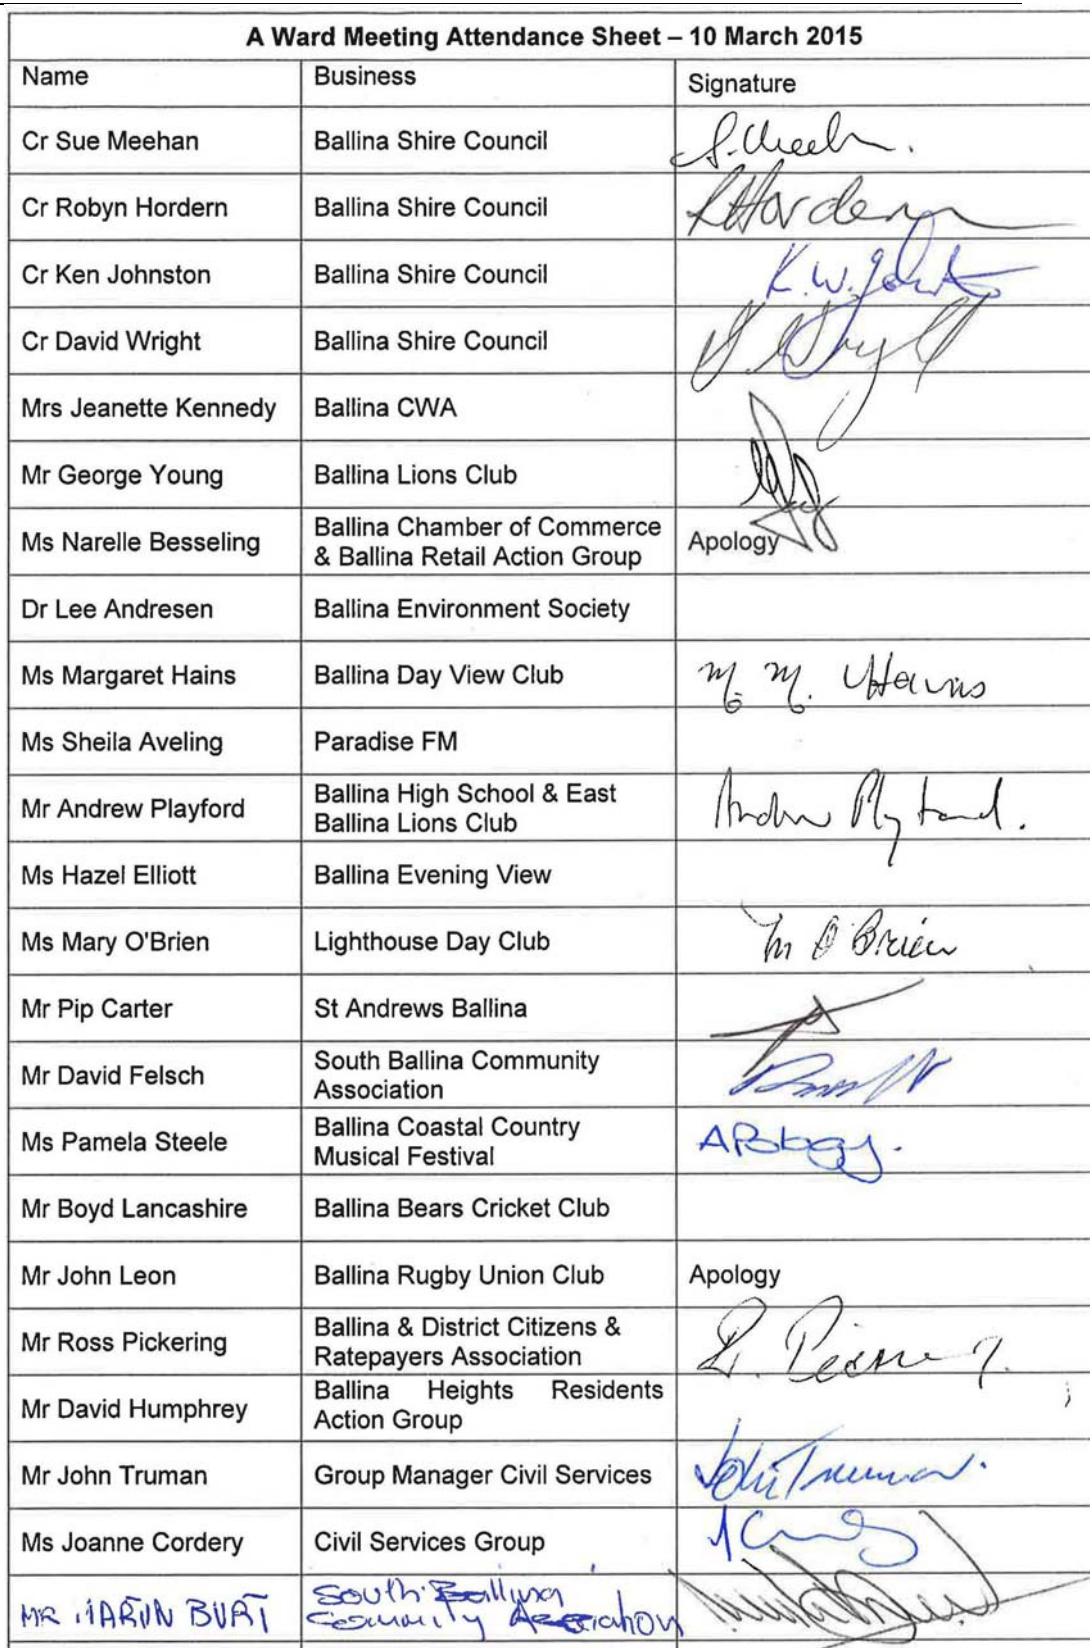 A Ward Meeting Attendance Sheet – 10 March 2015
Name Business Signature
Cr Sue Meehan Ballina Shire Council
Cr Robyn Hordern Ballina Shire Council RHordern
Cr Ken Johnston Ballina Shire Council K.W.
Cr David Wright Ballina Shire Council
Mrs Jeanette Kennedy Ballina CWA
Mr George Young Ballina Lions Club
Ms Narelle Besseling Ballina Chamber of Commerce
& Ballina Retail Action Group Apology
Dr Lee Andresen Ballina Environment Society
Ms Margaret Hains Ballina Day View Club M. M. Hains
Ms Sheila Aveling Paradise FM
Mr Andrew Playford Ballina High School & East
Ballina Lions Club
Ms Hazel Elliott Ballina Evening View
Ms Mary O'Brien Lighthouse Day Club M O'Brien
Mr Pip Carter St Andrews Ballina
Mr David Felsch South Ballina Community
Association
Ms Pamela Steele Ballina Coastal Country
Musical Festival Apology.
Mr Boyd Lancashire Ballina Bears Cricket Club
Mr John Leon Ballina Rugby Union Club Apology
Mr Ross Pickering Ballina & District Citizens &
Ratepayers Association
Mr David Humphrey Ballina Heights Residents
Action Group
Mr John Truman Group Manager Civil Services John Truman.
Ms Joanne Cordery Civil Services Group
MR BURT South Ballina
Community Association